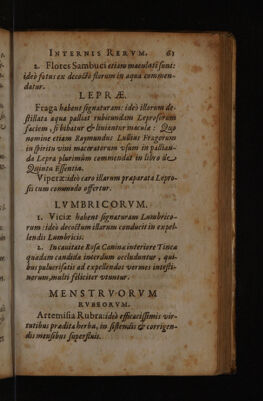 INTERNIS RERVM. 63
2. Flores Sambuci etiam maculati sunt:
ideò fotus ex decocto florum in aqua commen-
datur.
LEPRÆ.
Fraga habent signaturam: ideò illorum de-
stillata aqua palliat rubicundam Leprosorum
faciem, si bibatur & liniantur maculæ: Quo
nomine etiam Raymundus Lullius Fragorum
in spiritu vini maceratorum vsum in pallian-
da Lepra plurimùm commendat in libro de
Quinta Essentia.
Viperæ: ideò caro illarum præparata Lepro-
sis cum commodo offertur.
LVMBRICORVM.
1. Viciæ habent signaturam Lumbrico-
rum: ideò decoctum illarum conducit in expel-
lendis Lumbricis.
2. In cauitate Rosæ Caninæ interiore Tinea
quædam candida interdum occluduntur, qui-
bus puluerisatis ad expellendos vermes intesti-
norum, multi fœliciter vtuntur.
MENSTRVORVM
RVBEORVM.
Artemisia Rubra: ideò efficacissimis vir-
tutibus prædita herba, in sistendis & corrigen-
dis mensibus superfluis.